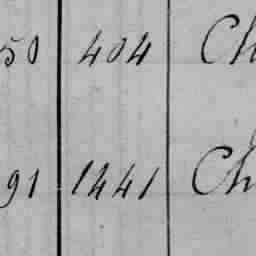 50 404 Ch
91 1441 Ch